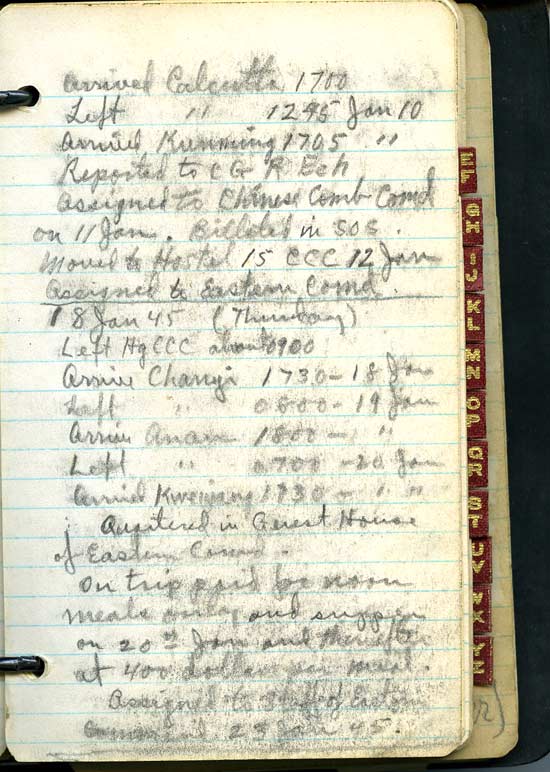 Arrived Calcutta 1700
Left " 1245 Jan 10
Arrived Kunming 1705 "
Reported to C G R Ech
Assigned to Chinese Comb Comd
on 11 Jan. Billeted in SOS.
Moved to Hostel 15 CCC 12 Jan
Assigned to Eastern Comd.
18 Jan 45 (Thursday)
Left Hq CCC about 0900
Arrive Changi 1730 - 18 Jan
Left " 0800 - 19 Jan
Arrive Anan 1800 - "
Left " 0700 - 20 Jan
Arrived Kweiyang 1730 - " "
Quartered in Guest House
of Eastern Comd.
On trip paid for noon
meals only and supper
on 20th Jan and thereafter
at 400 dollars per meal.
Assigned to Staff of Eastern
Command 23 Jan 45.
EF
GH
IJ
KL
MN
OP
QR
ST
UV
WX
YZ